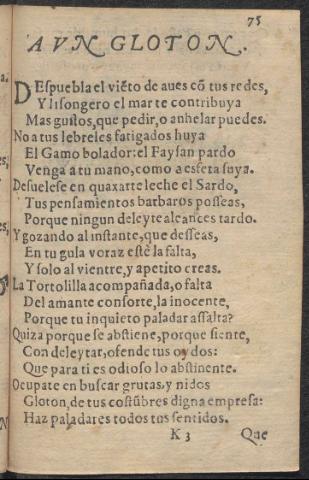 75
A VN GLOTON.
DEspuebla el viẽto de aues cõ tus redes,
Y lisongero el mar te contribuya
Mas gustos, que pedir, o anhelar puedes.
No a tus lebreles fatigados huya
El Gamo bolador: el Faysan pardo
Venga a tu mano, como a esfera suya.
Desuelese en quaxarte leche el Sardo,
Tus pensamientos barbaros posseas,
Porque ningun deleyte alcances tardo.
Y gozando al instante, que desseas,
En tu gula voraz estè la falta,
Y solo al vientre, y apetito creas.
La Tortolilla acompañada, o falta
Del amante consorte, la inocente,
Porque tu inquieto paladar assalta?
Quiza porque se abstiene, porque siente,
Con deleytar, ofende tus oydos:
Que para ti es odioso lo abstinente.
Ocupate en buscar grutas, y nidos
Gloton, de tus costũbres digna empresa:
Haz paladares todos tus sentidos.
K 3 Que